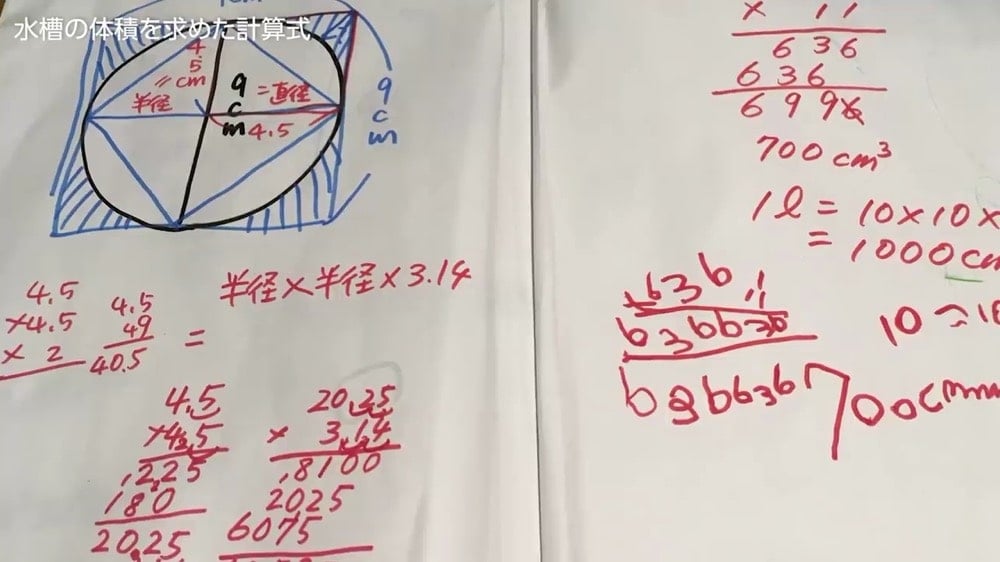 水槽の体積を求めた計算式
4.5
cm
半径
9
cm
=直径
4.5
9
cm
半径×半径×3.14
4.5
×4.5
× 2
4.5
49
40.5
=
4.5
×4.5
225
180
20.25
20.25
× 3.14
8100
2025
6075
× 11
636
636
699
700cm³
1ℓ = 10×10×
= 1000cm
636
636636
10